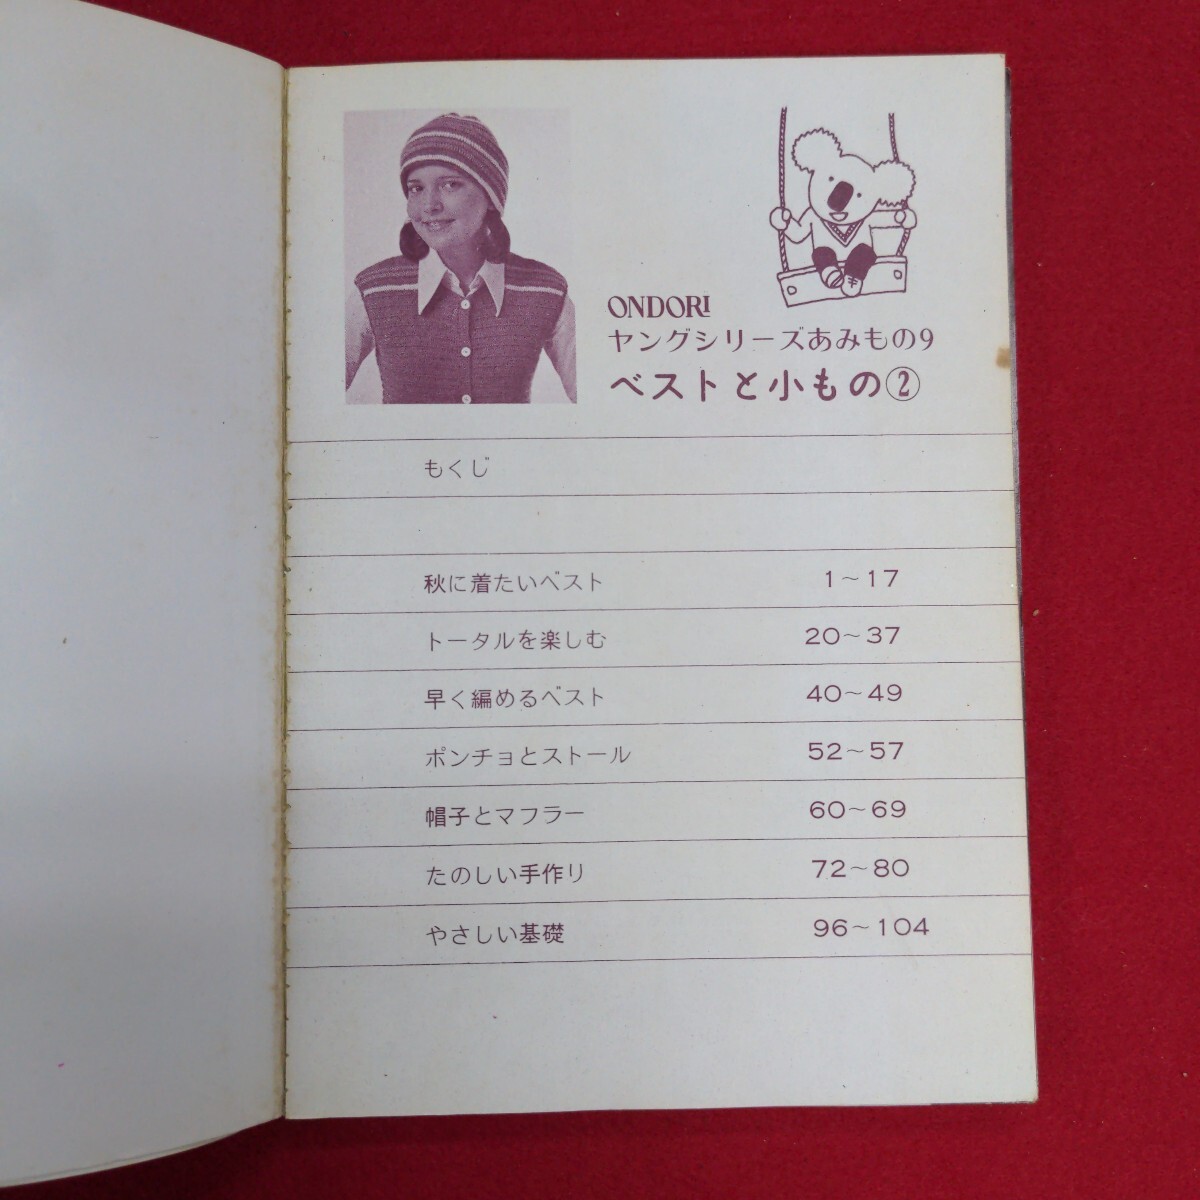 ONDORI
ヤングシリーズあみもの9
ベストと小もの②
もくじ
秋に着たいベスト 1〜17
トータルを楽しむ 20〜37
早く編めるベスト 40〜49
ポンチョとストール 52〜57
帽子とマフラー 60〜69
たのしい手作り 72〜80
やさしい基礎 96〜104